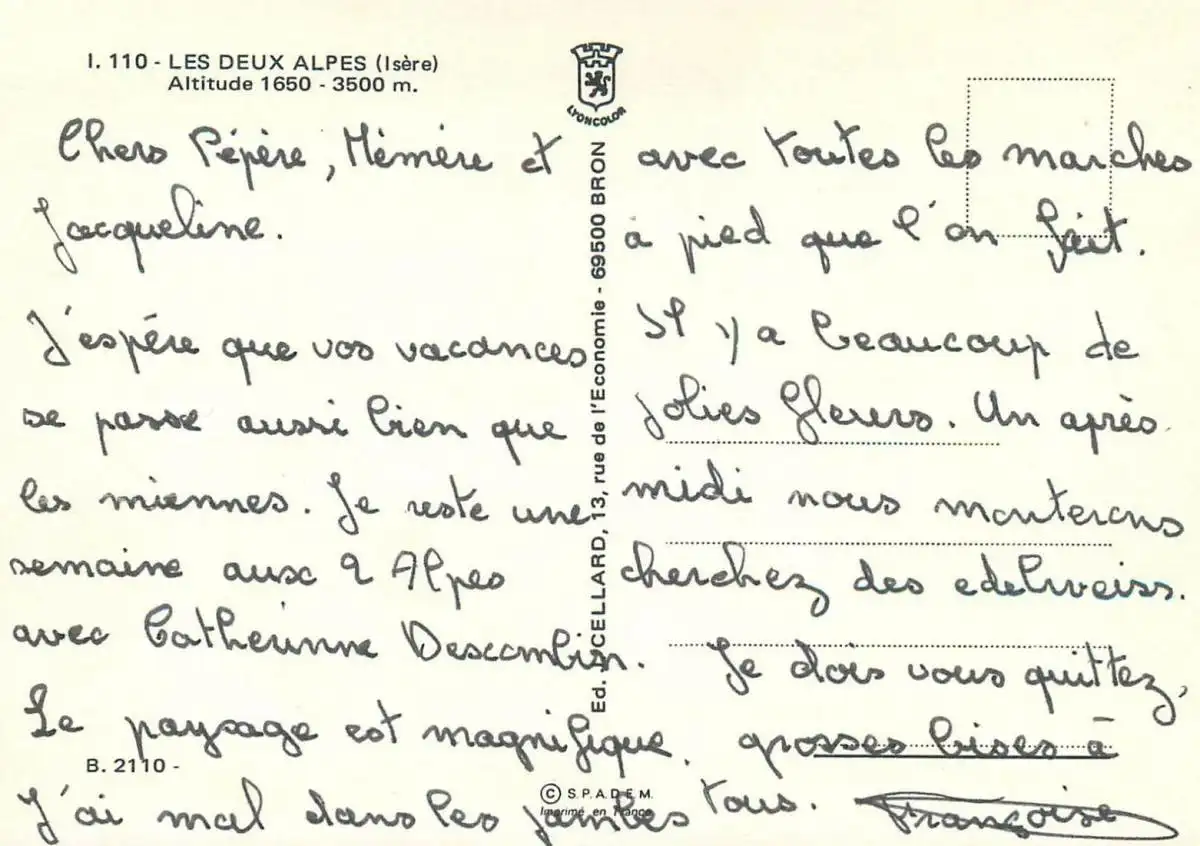 I. 110 - LES DEUX ALPES (Isère)
Altitude 1650 - 3500 m.
LYONCOLOR
Chers Pépère, Mémère et
Jacqueline.
J'espére que vos vacances
se passe aussi bien que
les miennes. Je reste une
semaine aux 2 Alpes
avec Catherinne Descombin.
Le paysage est magnifique.
J'ai mal dans les jambes
avec toutes les marches
a pied que l'on fait.
Il y a beaucoup de
jolies fleurs. Un après
midi nous monterons
cherchez des edelweiss.
Je dois vous quittez,
grosses bises à
tous. Françoise
Ed. CELLARD, 13, rue de l'Economie - 69500 BRON
B. 2110 -
© S.P.A.D.E.M.
Imprimé en France